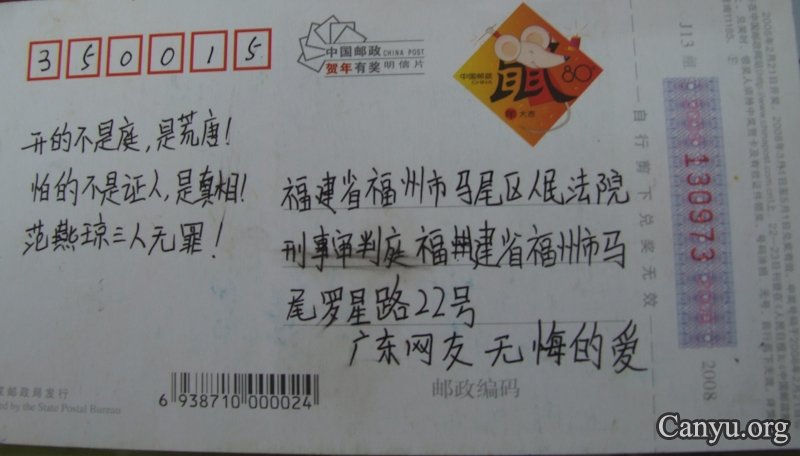 350015
中国邮政 CHINA POST
贺年有奖 明信片
中国邮政
CHINA
鼠
80分
年大吉
开的不是庭，是荒唐！
怕的不是证人，是真相！
范燕琼三人无罪！
福建省福州市马尾区人民法院
刑事审判庭 福建省福州市马
尾罗星路22号
广东网友 无悔的爱
邮政编码
6 938710 000024
家邮政局发行
ed by the State Postal Bureau
自行剪下兑奖无效
J13
130973
2008
Canyu.org